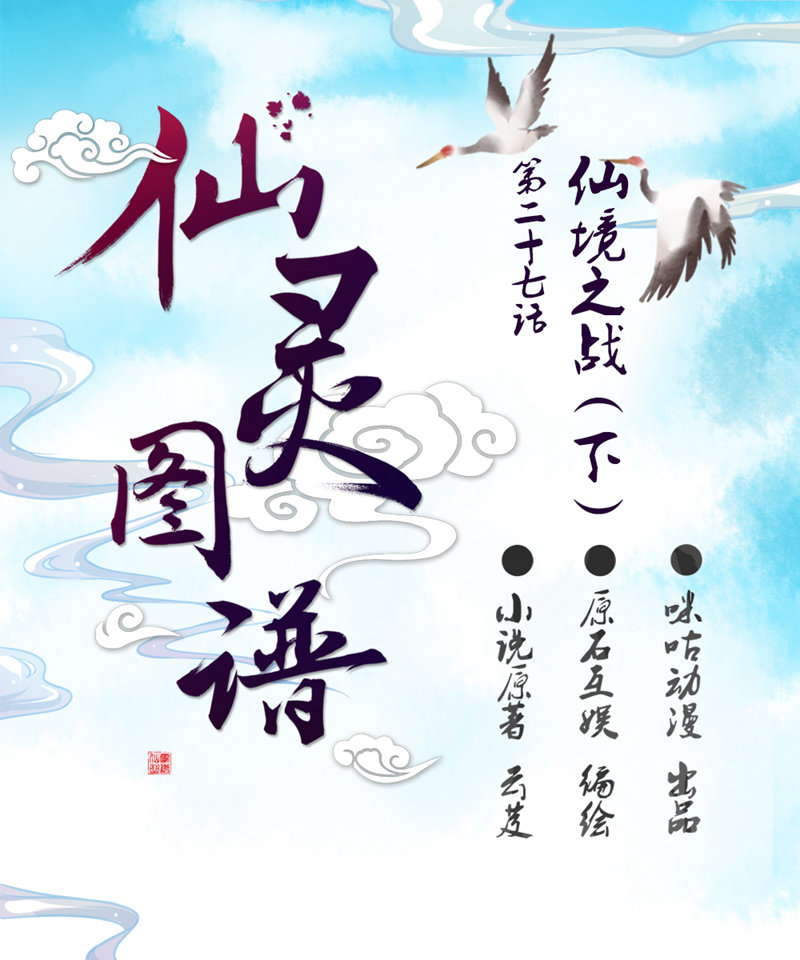 仙灵图谱
仙境之战（下）
第二十七话
咪咕动漫 出品
原石互娱 编绘
小说原著 云芨